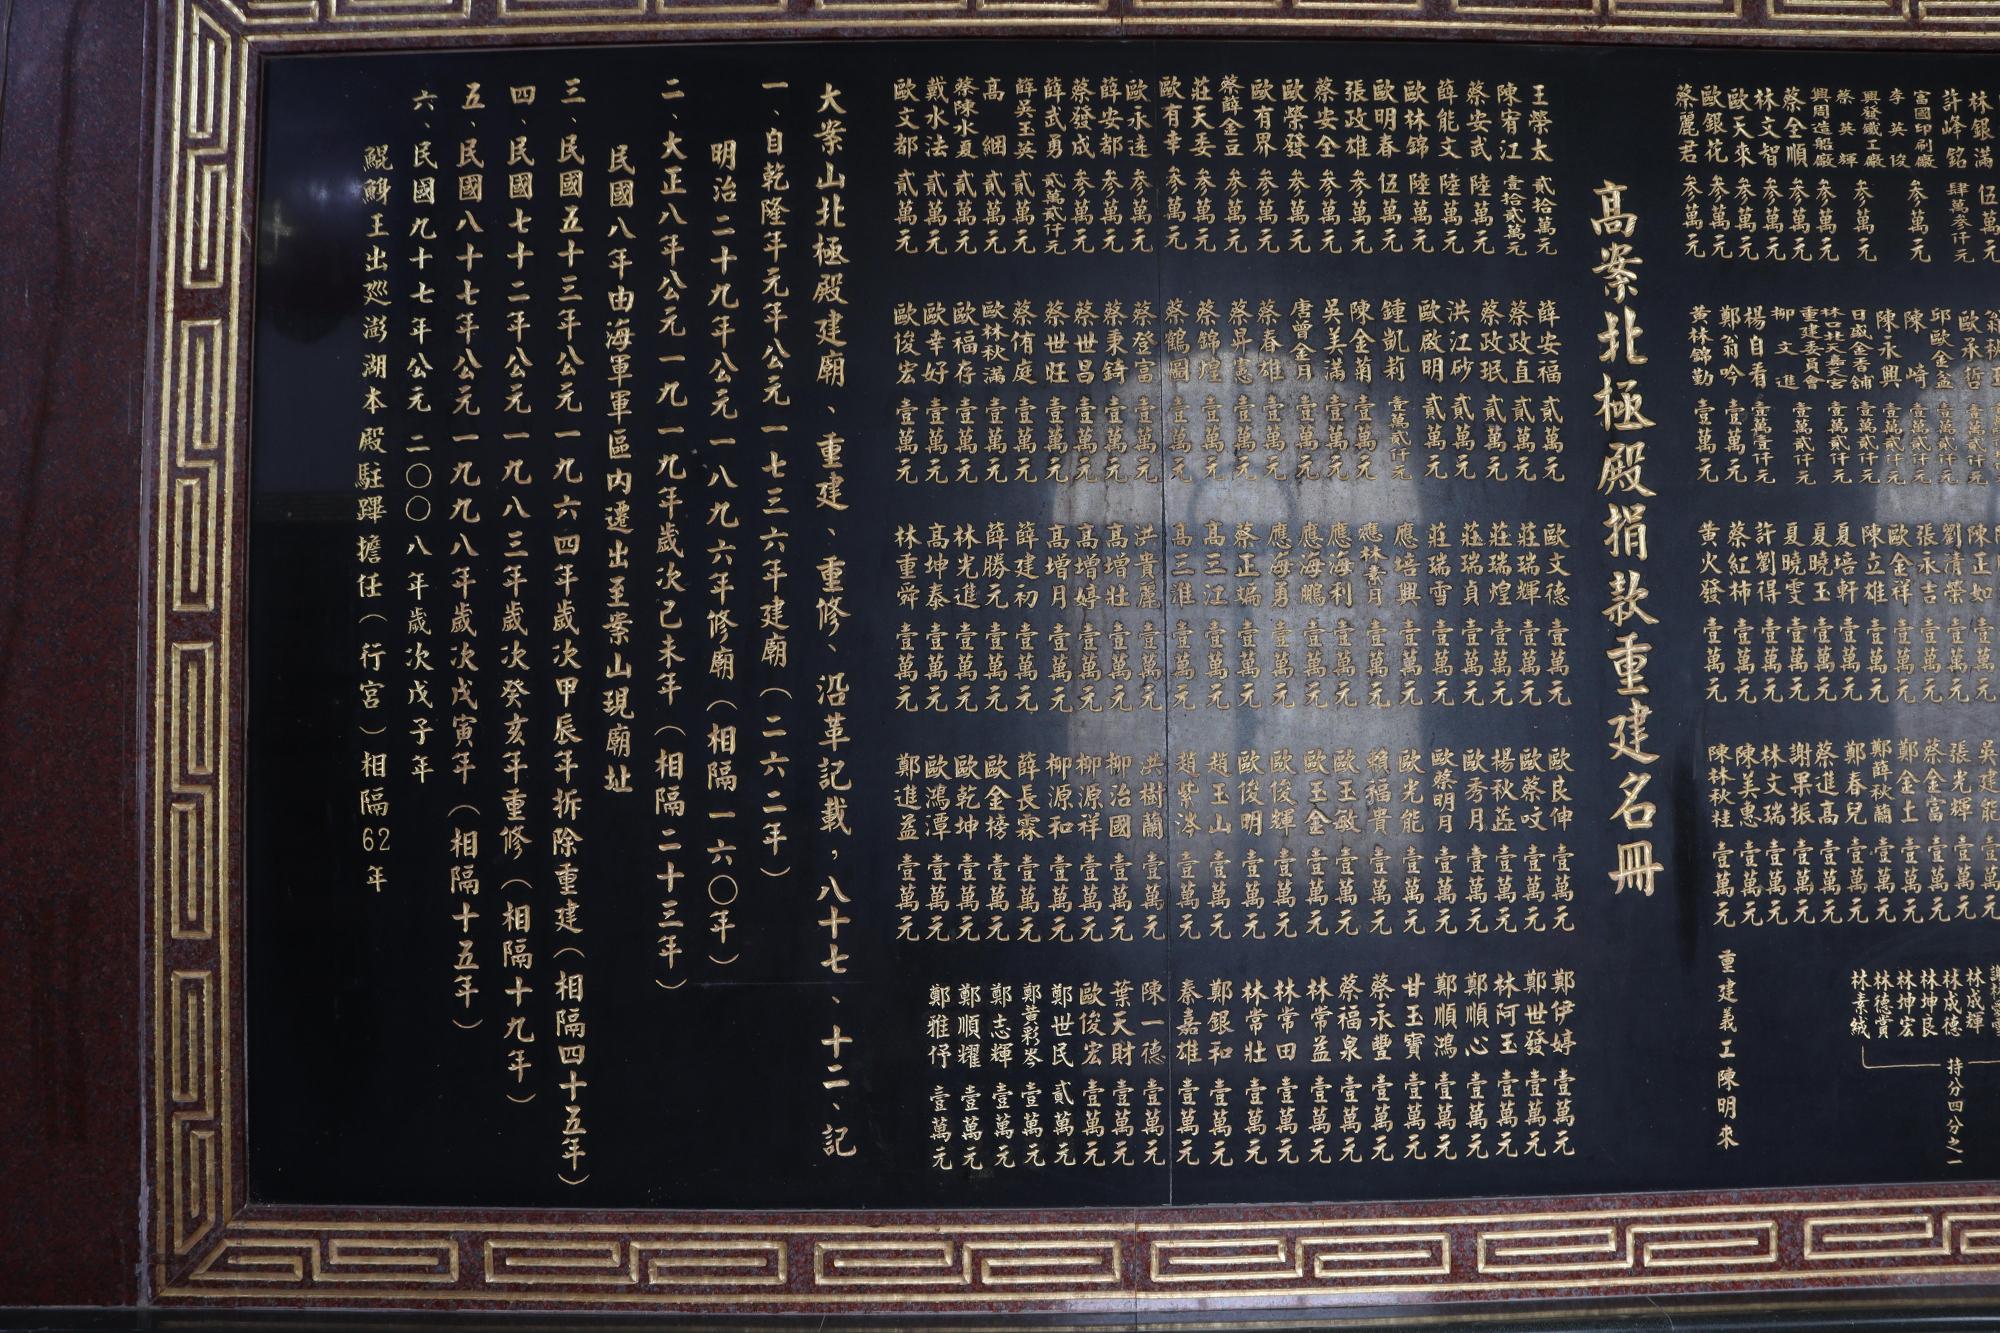 林銀滿 伍萬元
許峰銘 肆萬参仟元
富國印刷廠
李英俊 参萬元
興發鐵工廠
蔡英輝 参萬元
興周造船廠 参萬元
蔡全順 参萬元
林文智 参萬元
歐天來 参萬元
歐銀花 参萬元
蔡麗君 参萬元
歐承哲 壹萬貳仟元
邱歐金盆 壹萬貳仟元
陳崎 壹萬貳仟元
陳永興 壹萬貳仟元
日盛金香舖 壹萬貳仟元
林口北天嘉天宮
重建委員會 壹萬貳仟元
柳文進 壹萬貳仟元
楊自看 壹萬壹仟元
鄭翁吟 壹萬元
黃林錦勤 壹萬元
陳正如
劉清榮 壹萬元
張永吉 壹萬元
歐金祥 壹萬元
陳立雄 壹萬元
夏培軒 壹萬元
夏曉玉 壹萬元
夏曉雯 壹萬元
許劉得 壹萬元
蔡紅柿 壹萬元
黃火發 壹萬元
吳建能
張光輝 壹萬元
蔡金富 壹萬元
鄭金土 壹萬元
鄭薛秋蘭 壹萬元
鄭春兒 壹萬元
蔡進高 壹萬元
謝果振 壹萬元
林文瑞 壹萬元
陳美惠 壹萬元
陳林秋桂 壹萬元
林成輝
林成德
林坤良
林坤宏
林德賞
林素絨
持分四分之一
重建義工陳明來
高案北極殿捐款重建名冊
王榮太 貳拾萬元
陳宥江 壹拾貳萬元
蔡安武 陸萬元
薛能文 陸萬元
歐林錦 陸萬元
歐明春 伍萬元
張政雄 参萬元
蔡安全 参萬元
歐榮發 参萬元
歐有界 参萬元
蔡薛金豆 参萬元
莊天委 参萬元
歐有幸 参萬元
歐水遠 参萬元
薛安都 参萬元
蔡發成 参萬元
薛武勇 貳萬貳仟元
薛吳玉英 貳萬元
高 綑 貳萬元
蔡陳水夏 貳萬元
戴水法 貳萬元
歐文都 貳萬元
薛安福 貳萬元
蔡政直 貳萬元
蔡政珉 貳萬元
洪江砂 貳萬元
歐啟明 貳萬元
鍾凱莉 壹萬貳仟元
陳金菊 壹萬元
吳美滿 壹萬元
唐曾金月 壹萬元
蔡春雄 壹萬元
蔡昇憲 壹萬元
蔡錦煌 壹萬元
蔡鶴圖 壹萬元
蔡登富 壹萬元
蔡秉錡 壹萬元
蔡世昌 壹萬元
蔡世旺 壹萬元
蔡侑庭 壹萬元
歐林秋滿 壹萬元
歐福存 壹萬元
歐幸好 壹萬元
歐俊宏 壹萬元
歐文德 壹萬元
莊瑞輝 壹萬元
莊瑞煌 壹萬元
莊瑞貞 壹萬元
莊瑞雪 壹萬元
應培興 壹萬元
應林素月 壹萬元
應海利 壹萬元
應海鵬 壹萬元
應海勇 壹萬元
蔡正端 壹萬元
高三江 壹萬元
高三淮 壹萬元
洪貴麗 壹萬元
高增壯 壹萬元
高增婷 壹萬元
高增月 壹萬元
薛建初 壹萬元
薛勝元 壹萬元
林光進 壹萬元
高坤泰 壹萬元
林重舜 壹萬元
歐良伸 壹萬元
歐蔡咬 壹萬元
楊秋菣 壹萬元
歐秀月 壹萬元
歐蔡明月 壹萬元
歐光能 壹萬元
賴福貴 壹萬元
歐玉敏 壹萬元
歐玉金 壹萬元
歐俊輝 壹萬元
歐俊明 壹萬元
趙玉山 壹萬元
趙紫涔 壹萬元
洪樹蘭 壹萬元
柳治國 壹萬元
柳源祥 壹萬元
柳源和 壹萬元
薛長霖 壹萬元
歐金榜 壹萬元
歐乾坤 壹萬元
歐鴻潭 壹萬元
鄭進益 壹萬元
鄭伊婷 壹萬元
鄭世發 壹萬元
林阿玉 壹萬元
鄭順心 壹萬元
鄭順鴻 壹萬元
甘玉寶 壹萬元
蔡永豐 壹萬元
蔡福泉 壹萬元
林常益 壹萬元
林常田 壹萬元
林常壯 壹萬元
鄭銀和 壹萬元
秦嘉雄 壹萬元
陳一德 壹萬元
葉天財 壹萬元
歐俊宏 壹萬元
鄭世民 貳萬元
鄭黃彩岑 壹萬元
鄭志輝 壹萬元
鄭順耀 壹萬元
鄭雅伃 壹萬元
大案山北極殿建廟、重建、重修、沿革記載，八十七、十二、記
一、自乾隆年元年公元一七三六年建廟（二六二年）
明治二十九年公元一八九六年修廟（相隔一六〇年）
二、大正八年公元一九一九年歲次己未年（相隔二十三年）
民國八年由海軍軍區內遷出至案山現廟址
三、民國五十三年公元一九六四年歲次甲辰年拆除重建（相隔四十五年）
四、民國七十二年公元一九八三年歲次癸亥年重修（相隔十九年）
五、民國八十七年公元一九九八年歲次戊寅年（相隔十五年）
六、民國九十七年公元二〇〇八年歲次戊子年
鯤鯓王出巡澎湖本殿駐蹕擔任（行宮）相隔62年